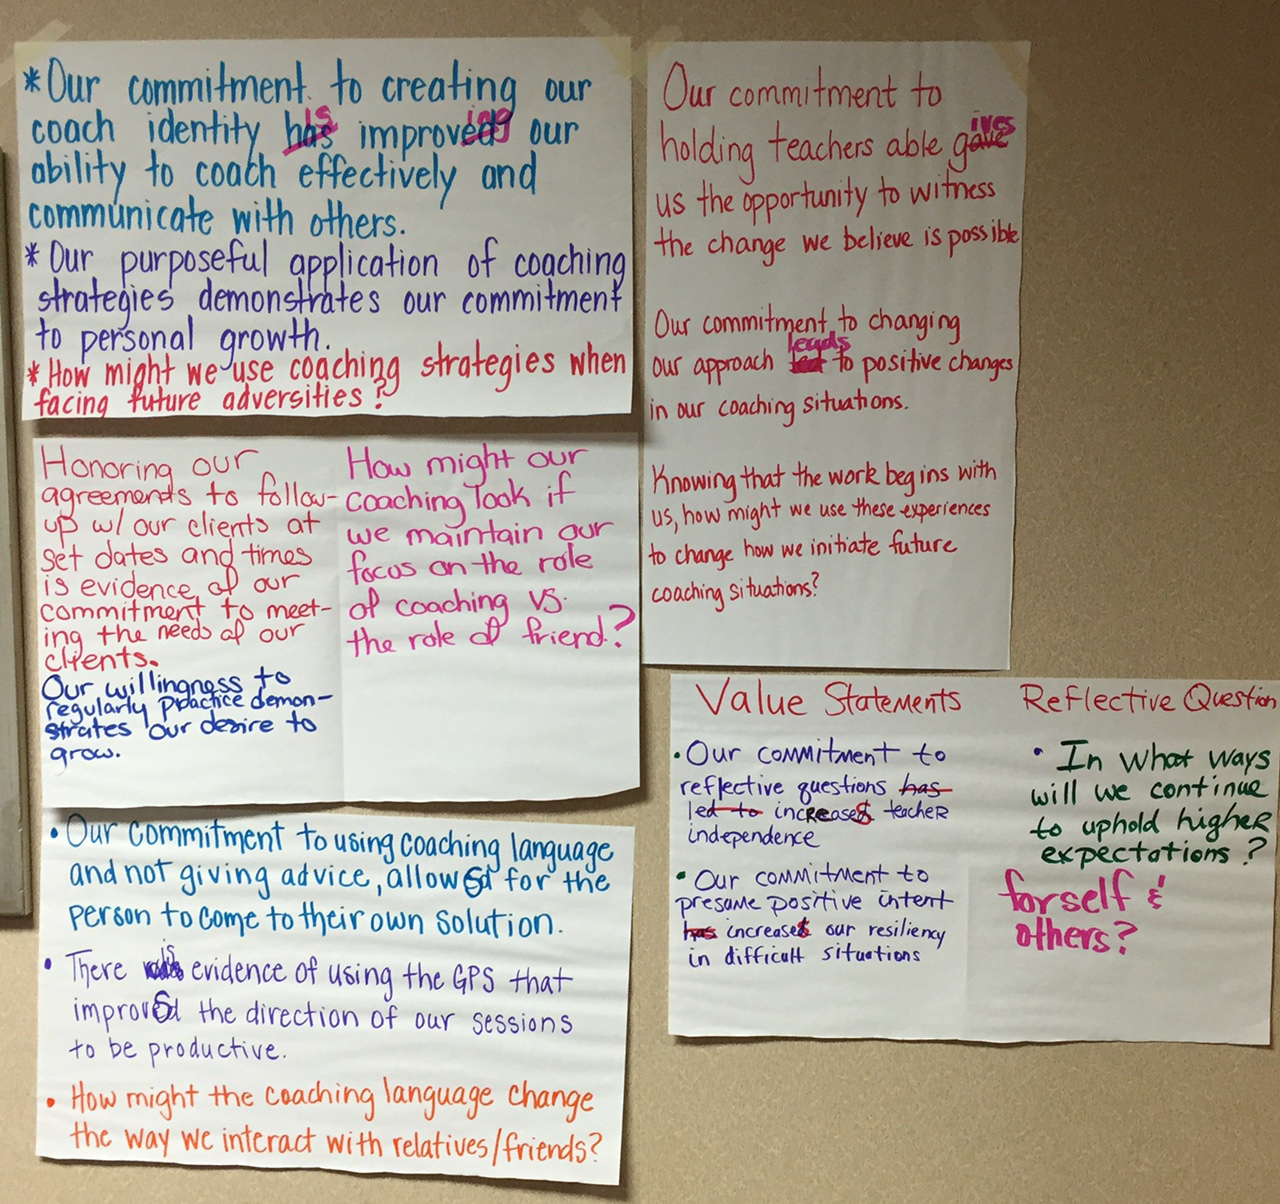 *Our commitment to creating our
coach identity has is improved ing our
ability to coach effectively and
communicate with others.
*Our purposeful application of coaching
strategies demonstrates our commitment
to personal growth.
*How might we use coaching strategies when
facing future adversities?
Our commitment to
holding teachers able gave ives
us the opportunity to witness
the change we believe is possible
Our commitment to changing
our approach led leads to positive changes
in our coaching situations.
Knowing that the work begins with
us, how might we use these experiences
to change how we initiate future
coaching situations?
Honoring our
agreements to follow-
up w/ our clients at
set dates and times
is evidence of our
commitment to meet-
ing the needs of our
clients.
Our willingness to
regularly practice demon-
strates our desire to
grow.
How might our
coaching look if
we maintain our
focus on the role
of coaching vs.
the role of friend?
Value Statements
• Our commitment to
reflective questions has
led to increases teacher
independence
• Our commitment to
presume positive intent
has increases our resiliency
in difficult situations
Reflective Question
• In what ways
will we continue
to uphold higher
expectations?
for self &
others?
• Our commitment to using coaching language
and not giving advice, allows for the
person to come to their own solution.
• There was is evidence of using the GPS that
improves the direction of our sessions
to be productive.
• How might the coaching language change
the way we interact with relatives/friends?